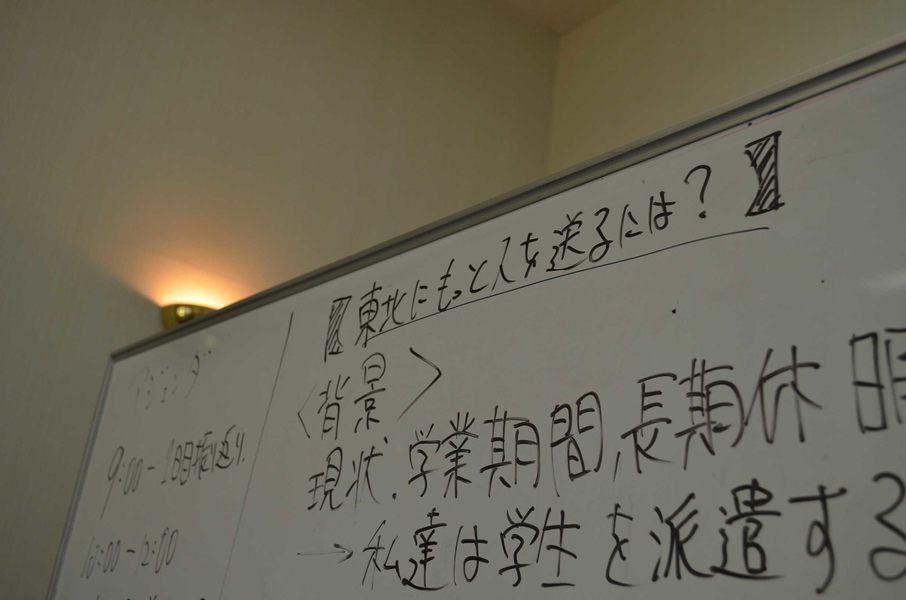 アジェンダ
9:00- 1日目振り返り
10:00-12:00
【東北にもっと人を送るには？】
〈背景〉
現状.学業期間,長期休暇
→私達は学生を派遣する